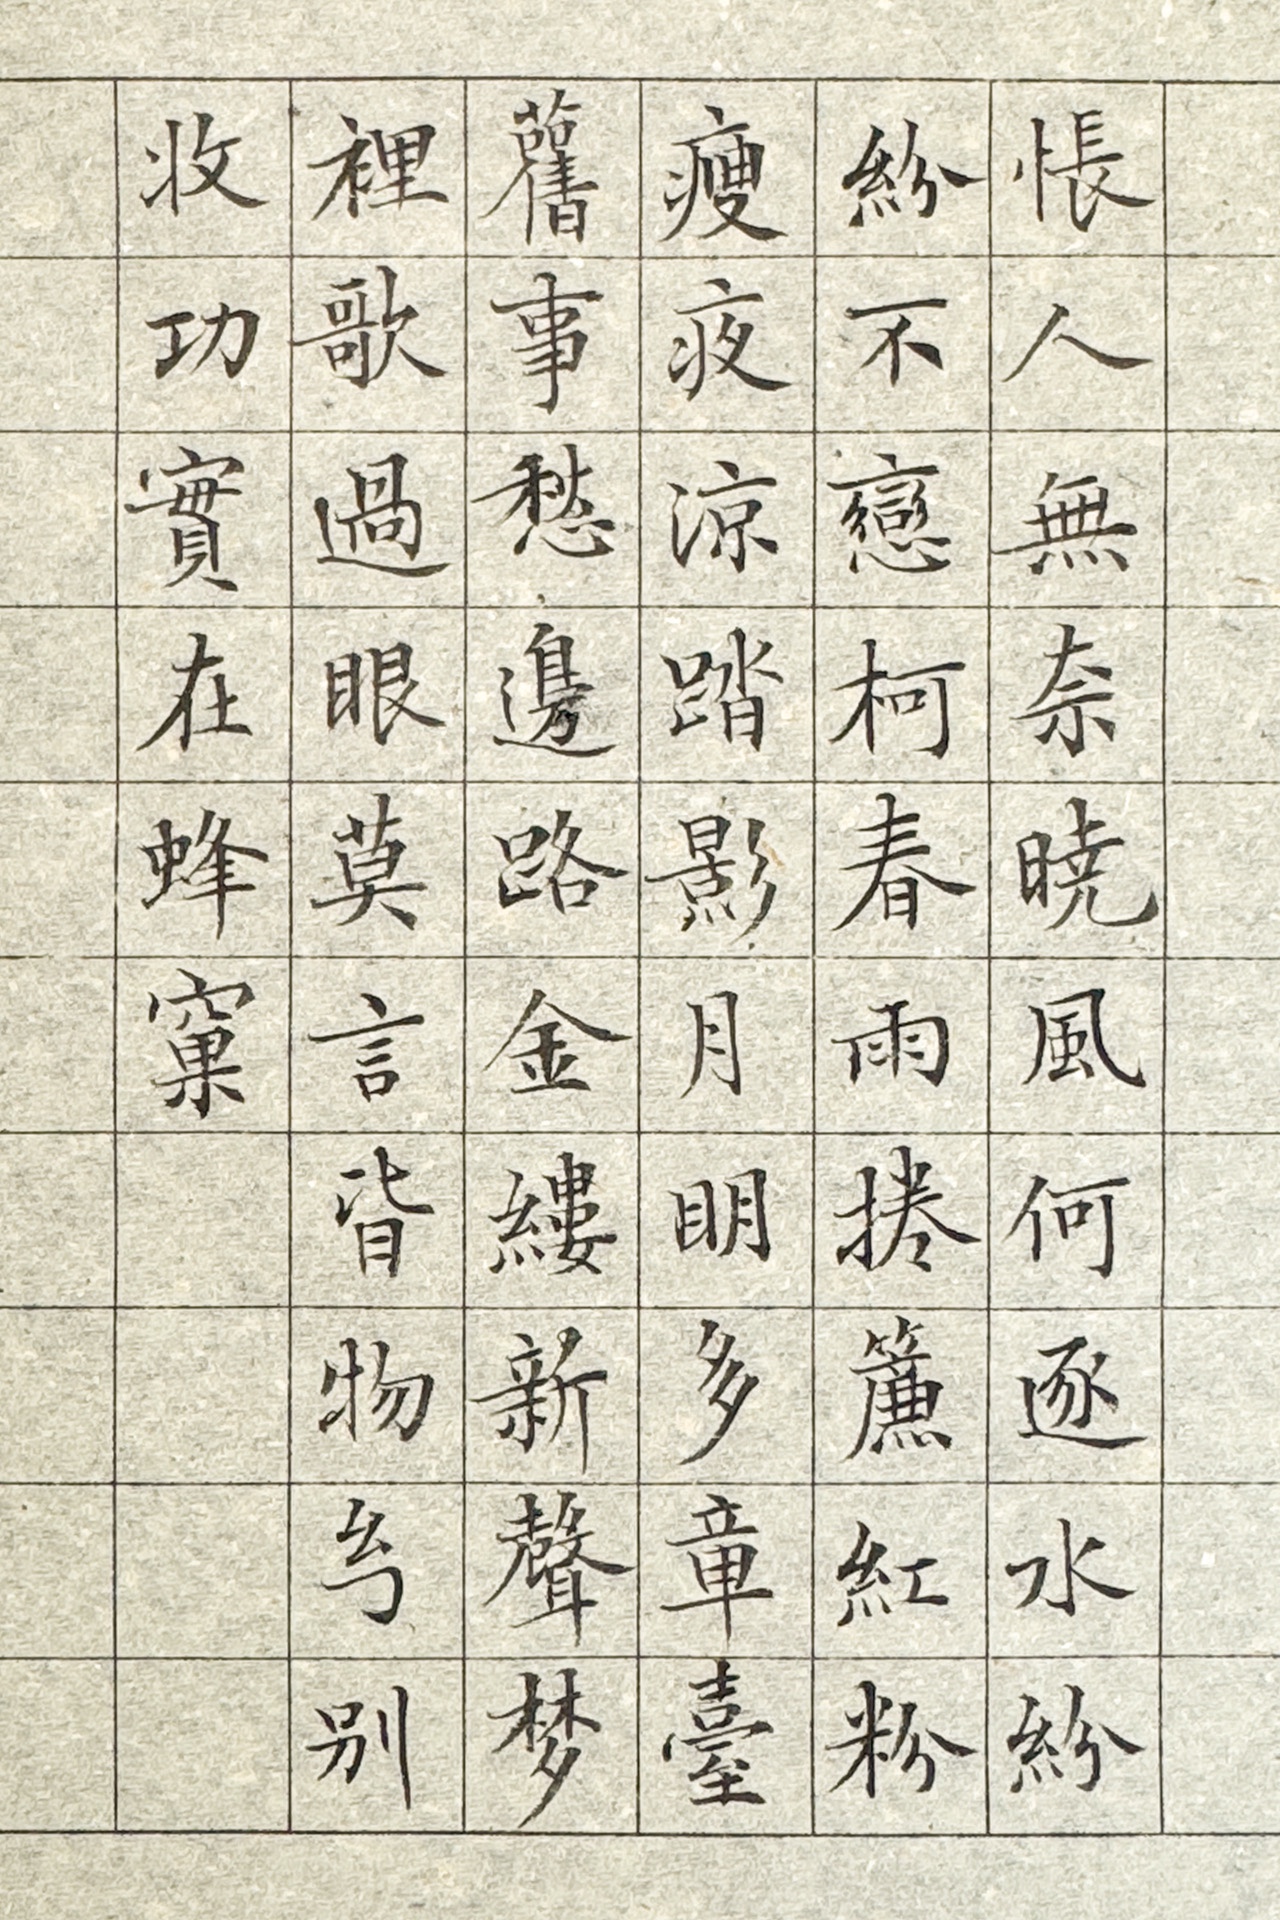 悵人無奈暁風何逐水紛
紛不戀柯春雨捲簾紅粉
瘦夜涼踏影月明多章臺
舊事愁邊路金縷新聲梦
裡歌過眼莫言皆物幻别
收功實在蜂窠